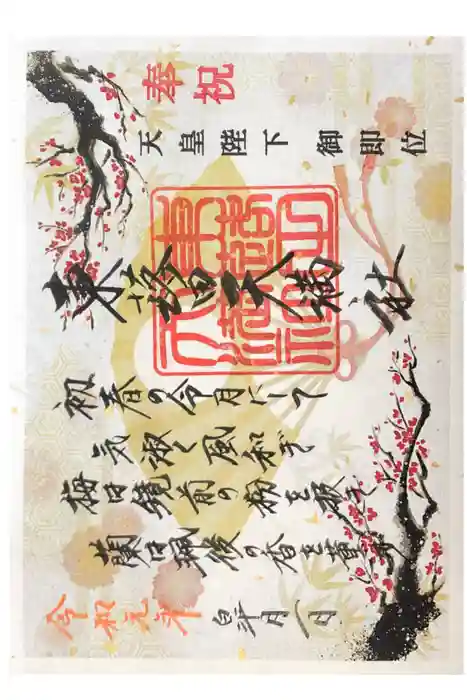 奉祝
天皇陛下 御即位
東蕗天満社
初春の令月にして
気淑く風和ぎ
梅は鏡前の粉を披き
蘭は珮後の香を薫す
令和元年 皐月一日